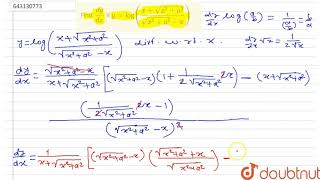 643130773
Find dy/dx : y = log((x+√(x²+a²))/(√(x²+a²)-x))
d/dx log(x) = 1/x
y = log((x+√(x²+a²))/(√(x²+a²)-x)) diff. w.r.t. x. d/dx √x = 1/(2√x)
dy/dx = (√(x²+a²)-x)/(x+√(x²+a²)) [(√(x²+a²)-x)(1+1/(2√(x²+a²)) 2x) - (x+√(x²+a²))
(1/(2√(x²+a²)) 2x - 1)
(√(x²+a²)-x)²
dy/dx = 1/(x+√(x²+a²)) [(√(x²+a²)-x)((√(x²+a²)+x)/√(x²+a²)) -
doubtnut